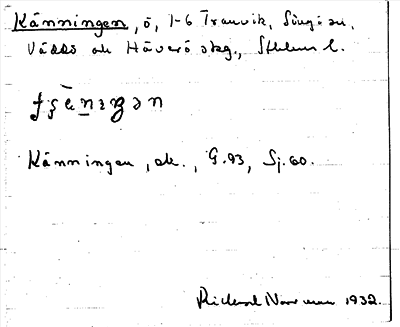 Känningen, ö, 1-6 Tranvik, Singö sn.
Väddö och Häverö skg., Sthlms l.
Känningen, ek., G.93, Sj.60.
Rickard 1932.